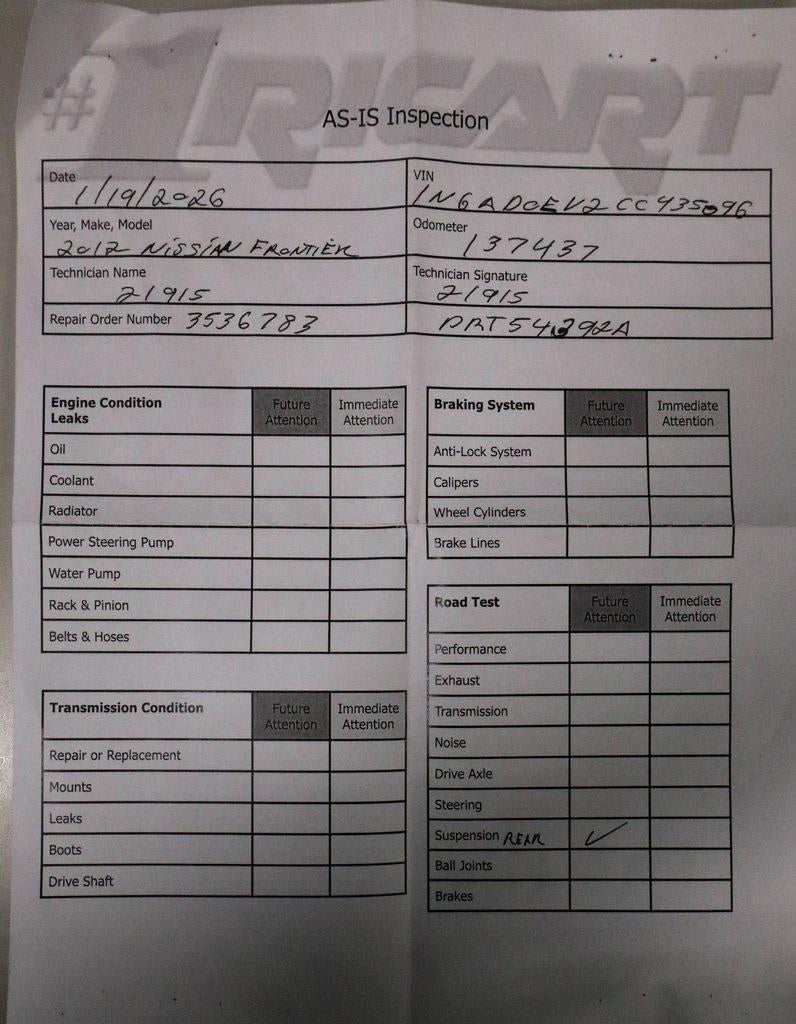 #1 RICART
AS-IS Inspection
Date 1/19/2026
VIN 1N6AD0EV2CC435096
Year, Make, Model 2012 NISSIAN FRONTIER
Odometer 137437
Technician Name 21915
Technician Signature 21915
Repair Order Number 3536783
PRT54292A
Engine Condition Leaks Future Attention Immediate Attention
Oil
Coolant
Radiator
Power Steering Pump
Water Pump
Rack & Pinion
Belts & Hoses
Transmission Condition Future Attention Immediate Attention
Repair or Replacement
Mounts
Leaks
Boots
Drive Shaft
Braking System Future Attention Immediate Attention
Anti-Lock System
Calipers
Wheel Cylinders
Brake Lines
Road Test Future Attention Immediate Attention
Performance
Exhaust
Transmission
Noise
Drive Axle
Steering
Suspension REAR ✓
Ball Joints
Brakes